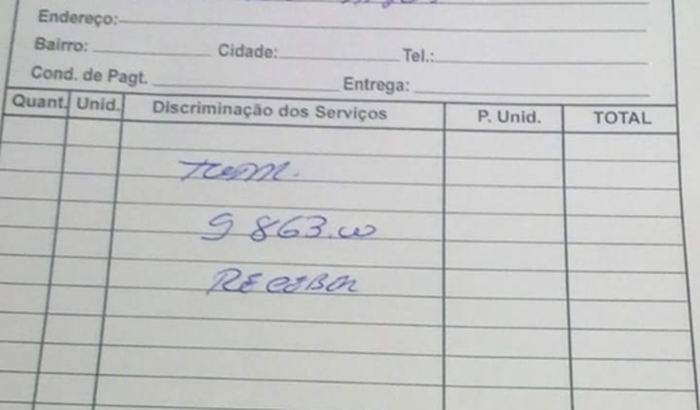 Endereço:
Bairro: Cidade: Tel.:
Cond. de Pagt. Entrega:
Quant. Unid. Discriminação dos Serviços P. Unid. TOTAL
9 863.00
RECIBON